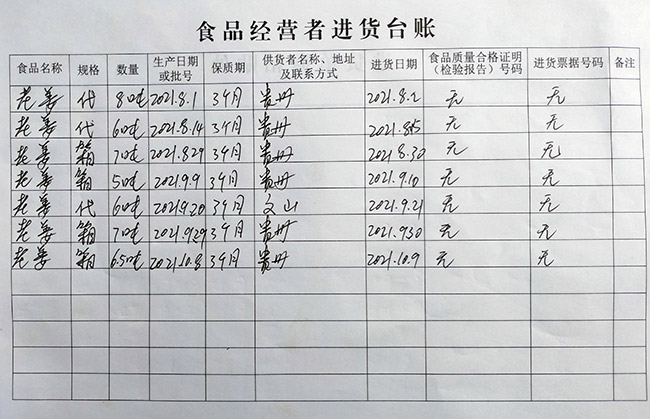 食品经营者进货台账
食品名称 规格 数量 生产日期或批号 保质期 供货者名称、地址及联系方式 进货日期 食品质量合格证明(检验报告)号码 进货票据号码 备注
老姜 代 8吨 2021.8.1 3个月 贵州 2021.8.2 无 无
老姜 代 6吨 2021.8.14 3个月 贵州 2021.8.15 无 无
老姜 箱 7吨 2021.8.29 3个月 贵州 2021.8.30 无 无
老姜 箱 5吨 2021.9.9 3个月 贵州 2021.9.10 无 无
老姜 代 6吨 2021.9.20 3个月 文山 2021.9.21 无 无
老姜 箱 7吨 2021.9.29 3个月 贵州 2021.9.30 无 无
老姜 箱 6.5吨 2021.10.8 3个月 贵州 2021.10.9 无 无